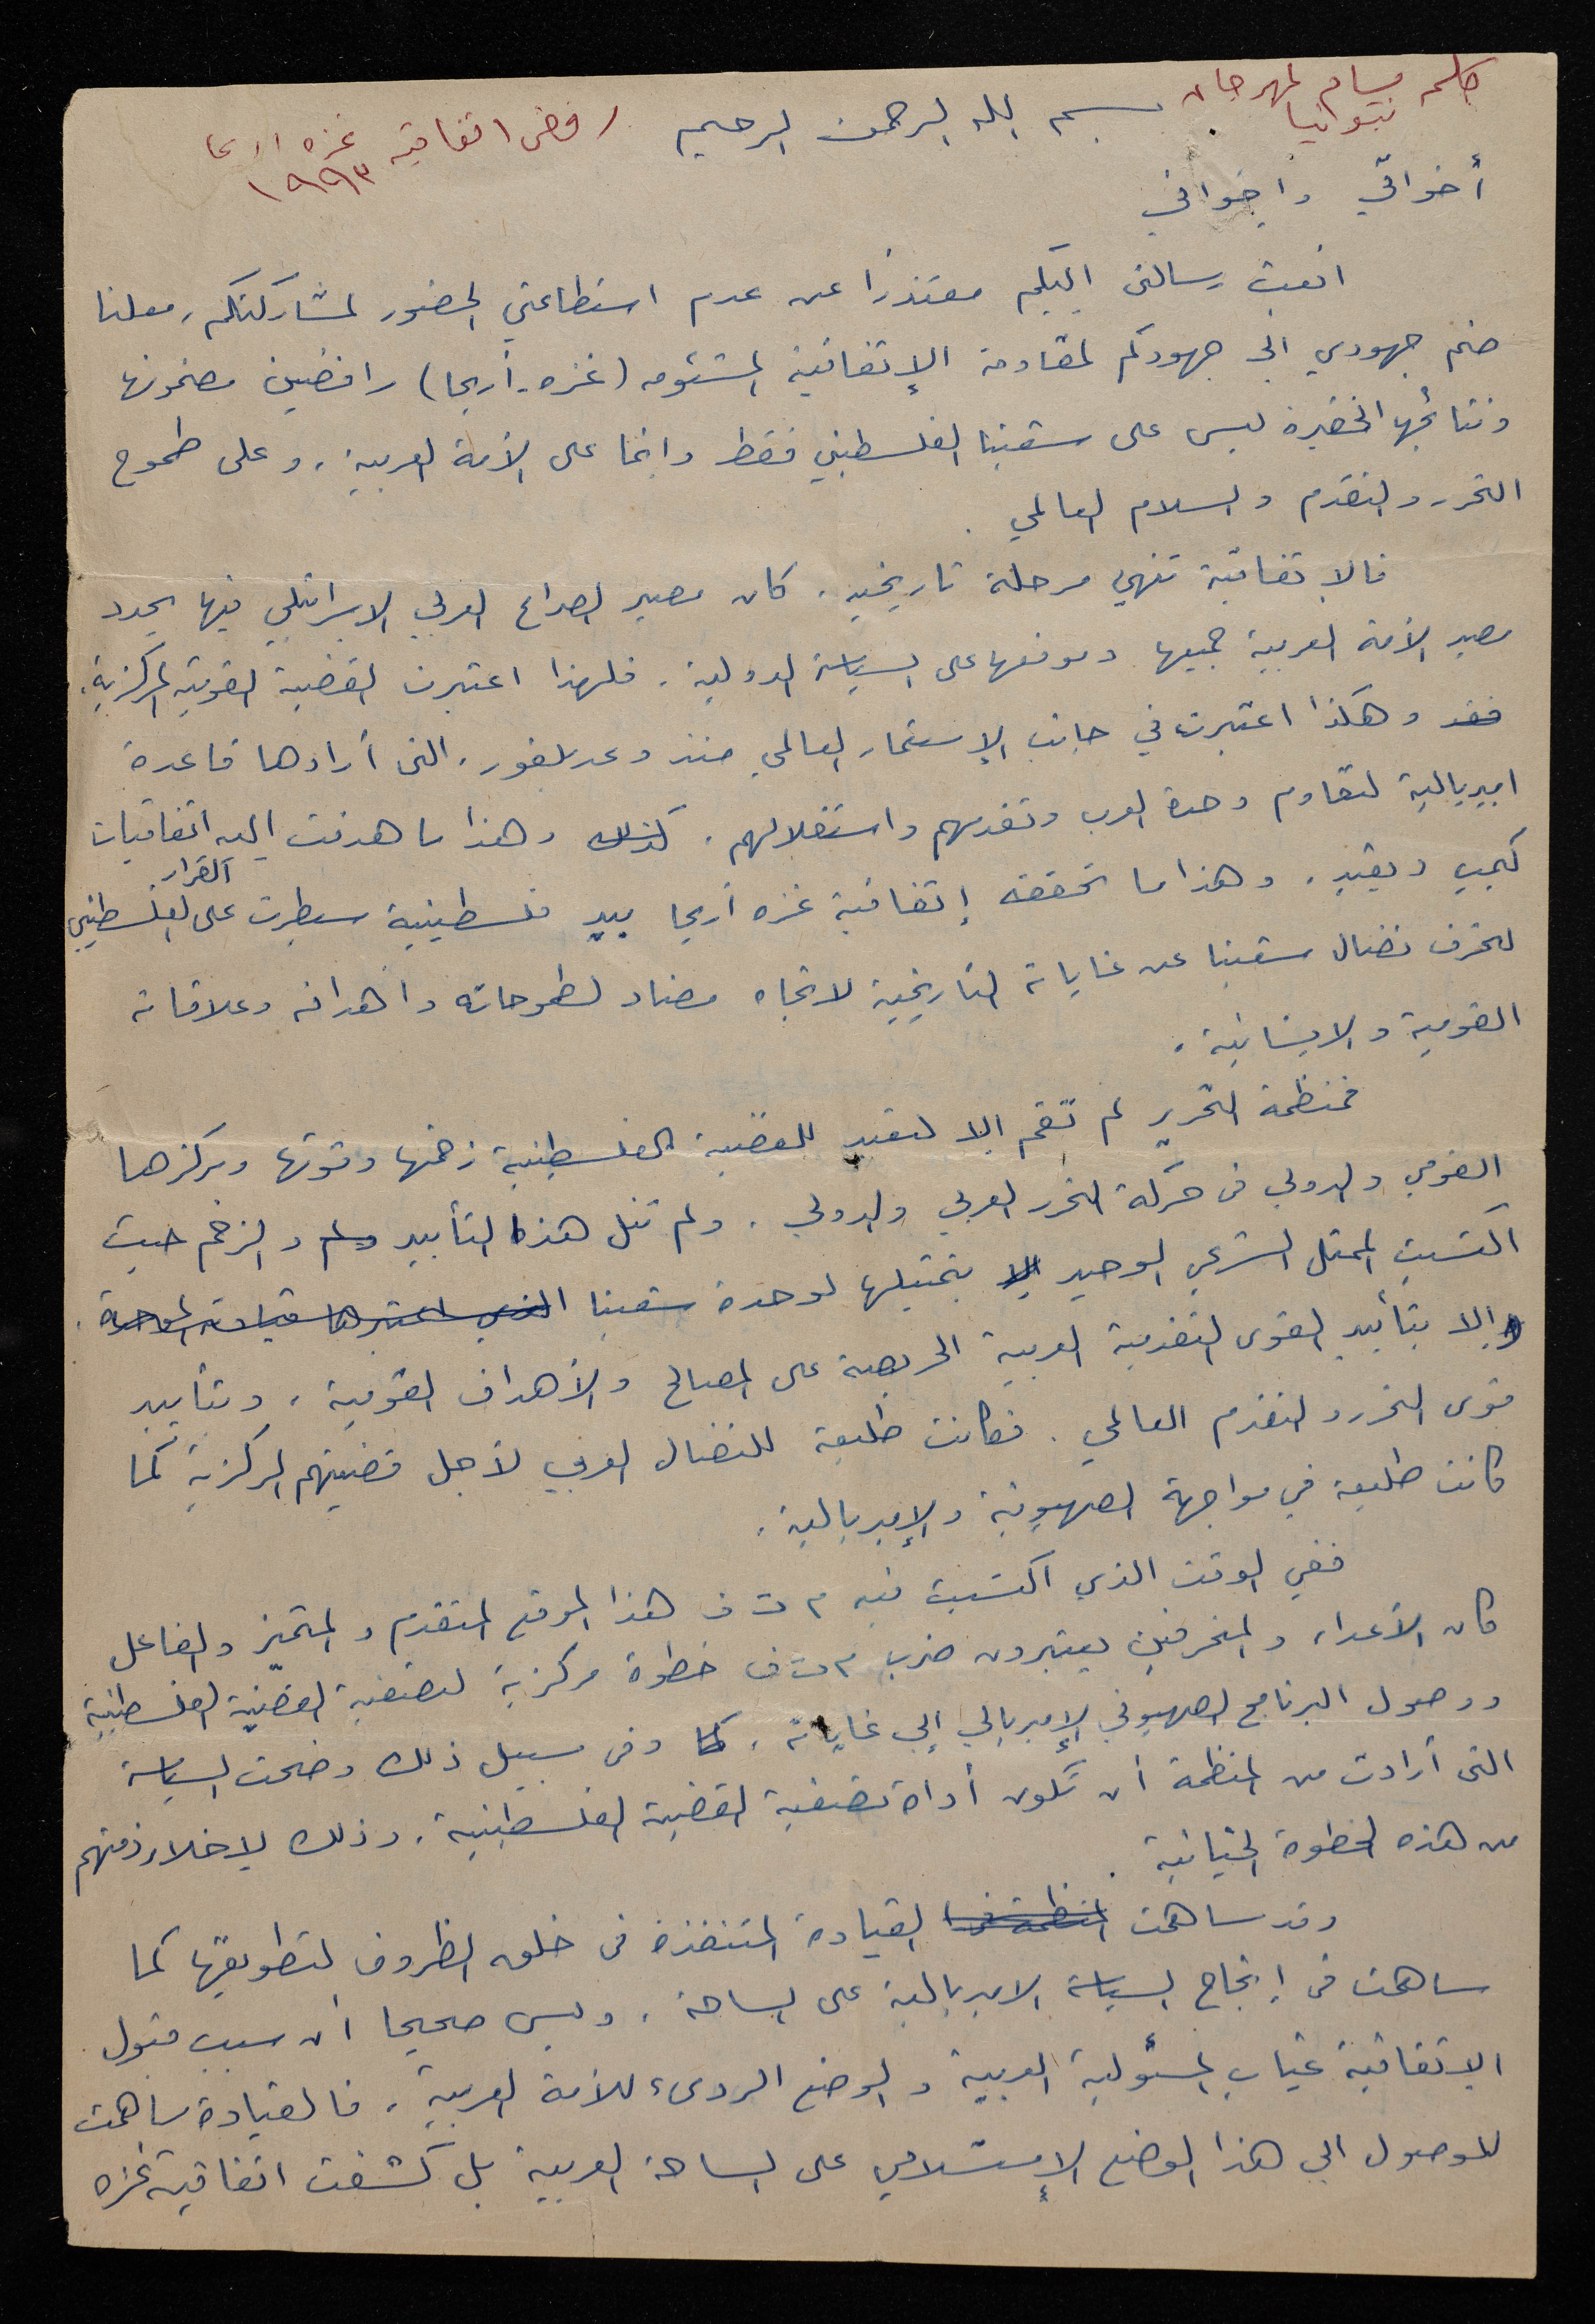 كلمه بسام لمهرجان
بسم الله الرحمن الرحيم
رفض اتفاقية غزه اريحا
١٩٩٣
أخواتي واخواني
ابعث رسالتي اليكم معتذرا عن عدم استطاعتي الحضور لمشاركتكم، معلنا
ضم جهودي الى جهودكم لمقاومة الإتفاقية المشئومه (غزه-أريحا) رافضين مضمونها
ونتائجها الخطيرة ليس على شعبنا الفلسطيني فقط وانما على الأمة العربية، وعلى طموح
التحرر والتقدم والسلام العالمي.
فالاتفاقية تنهي مرحلة تاريخيه، كان مصير الصراع العربي الاسرائيلي فيها يحدد
مصير الأمة العربية جميعها وموقعها على السياسة الدولية، فلهذا اعتبرت القضية القومية المركزية،
فقد وهكذا اعتبرت في جانب الإستعمار العالمي منذ وعد بلفور، التي أرادها قاعدة
امبريالية لتقاوم وحدة العرب وتقدمهم واستقلالهم. كذلك وهذا ما هدفت اليه اتفاقيات
كمب ديفيد، وهذا ما تحققه إتفاقية غزه أريحا بيد فلسطينية سيطرت على القرار الفلسطيني
لتحرف نضال شعبنا عن غاياته التاريخية لاتجاه مضاد لطموحاته واهدافه وعلاقاته
القومية والانسانية.
فمنظمة التحرير لم تقم إلا لتعيد للقضية الفلسطينية زخمها وقوتها ومركزها
القومي والدولي في حركة التحرر العربي والدولي. ولم تنل هذا التأييد ولم والزخم حيث
اكتسبت الممثل الشرعي الوحيد إلا بتمثيلها لوحدة شعبنا الذي اعتبرها قيادته الموحدة.
وإلا بتأييد القوى التقدمية العربية الحريصة على المصالح والأهداف القومية، وبتأييد
قوى التحرر والتقدم العالمي. فكانت طليعة للنضال العربي لأجل قضيتهم المركزية كما
كانت طليعة في مواجهة الصهيونية والإمبريالية.
ففي الوقت الذي اكتسبت فيه م ت ف هذا الموقع المتقدم والمتميز والفاعل
كان الأعداء والمنحرفين يعتبرون ضرب م ت ف خطوة مركزية لتصفية القضية الفلسطينية
ووصول البرنامج الصهيوني الإمبريالي إلى غاياته، كما وفي سبيل ذلك وضحت السياسة
التي أرادت من المنظمة أن تكون أداة تصفية القضية الفلسطينية، وذلك لإخلاء ذمتهم
من هذه الخطوة الخيانية.
وقد ساهمت المنظمة في القيادة المتنفذة في خلق الظروف لتطويقها كما
ساهمت في إنجاح السياسة الامبريالية على الساحة، وليس صحيحا أن سبب قبول
الإتفاقية غياب المسئولية العربية والوضع الردىء للأمة العربية، فالقيادة ساهمت
للوصول الى هذا الوضع الإستسلامي على الساحة العربية بل كشفت اتفاقية غزه